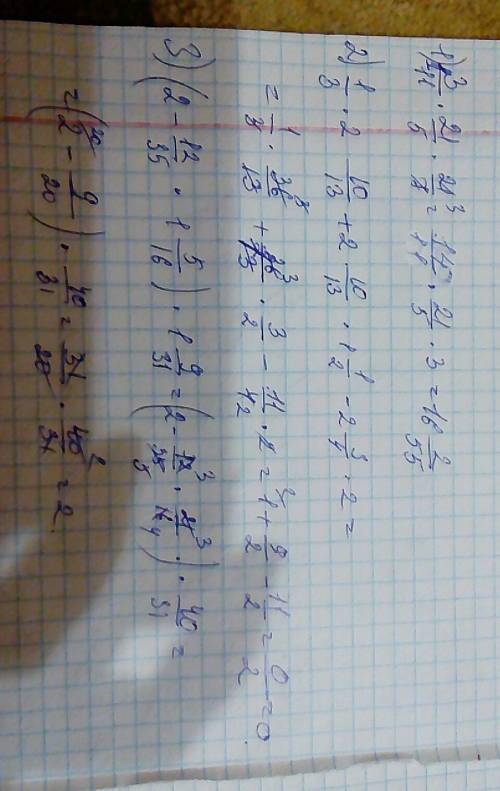 1) 1 3/11 · 21/5 · 21/7 = 14/11 · 21/5 · 3 = 16 2/55
2) 1/3 · 2 10/13 + 2 10/13 · 1 1/2 - 2 3/4 · 2 =
= 1/3 · 36/13 + 36/13 · 3/2 - 11/4 · 2 = 1 + 9/2 - 11/2 = 0/2 = 0.
3) (2 - 12/35 · 1 5/16) · 1 9/31 = (2 - 12/35 · 21/16) · 40/31 =
= (2 - 9/20) · 40/31 = 31/20 · 40/31 = 2.